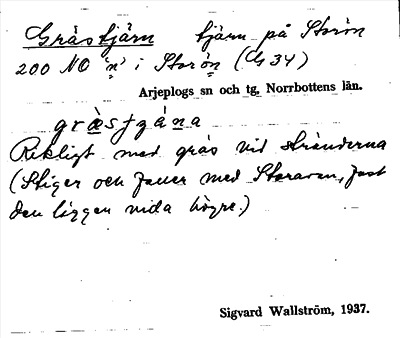 Gråstjärn tjärn på Storön
200 NO 'n' i Storön (G 34)
Arjeplogs sn och tg, Norrbottens län.
Rikligt med gräs vid stränderna
(Stiger och faller med Storavan, fast
den ligger nida högre.)
Sigvard Wallström, 1937.